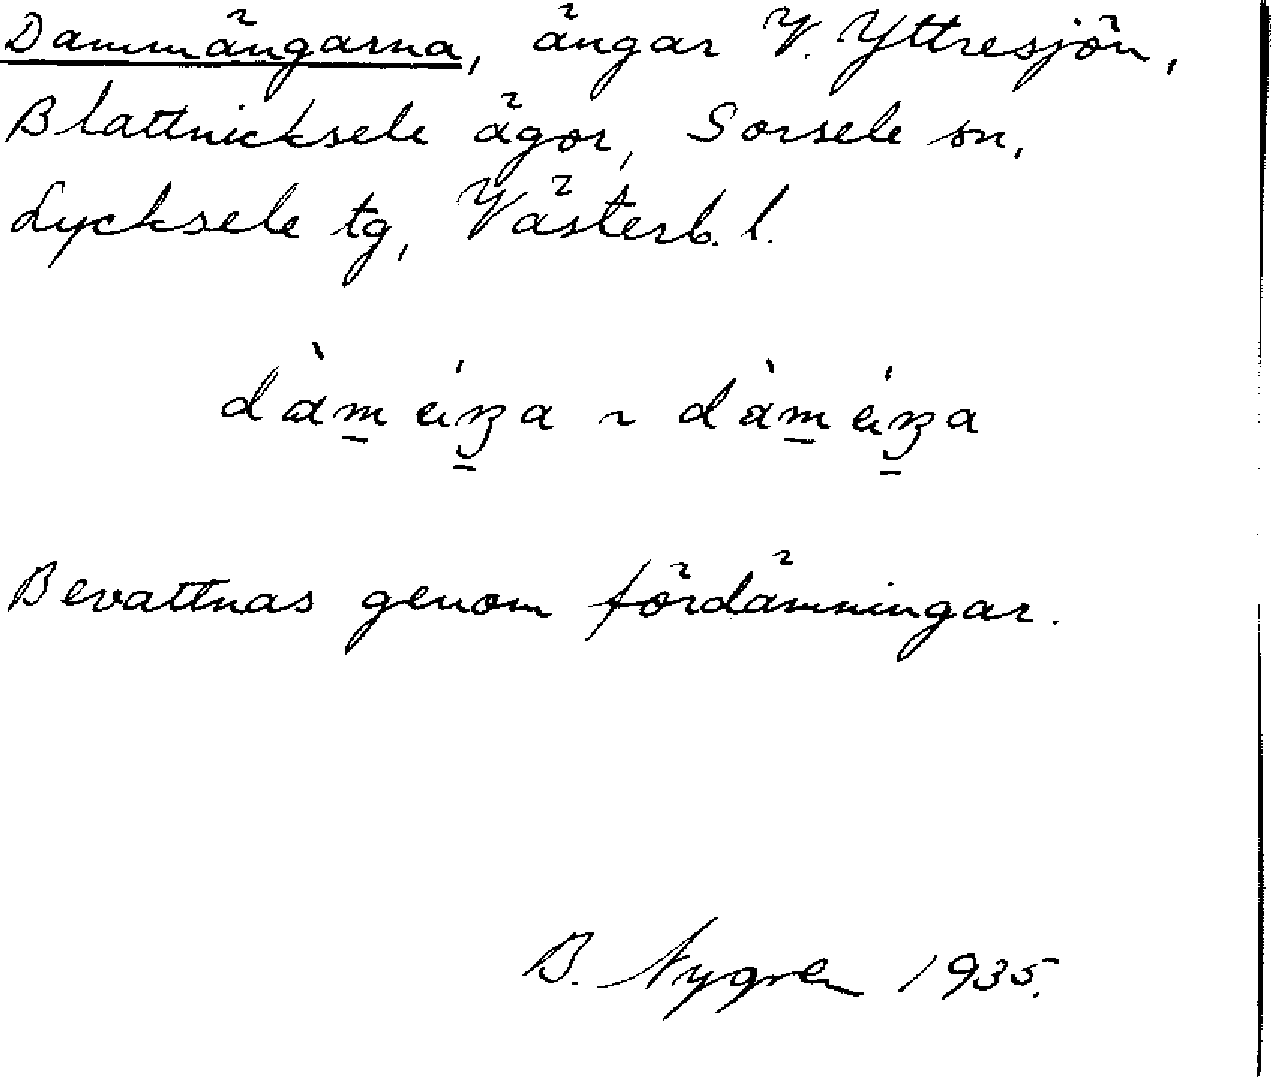 Dammängarna, ängar V. Yttresjön,
Blattnicksele ägor, Sorsele sn,
Lycksele tg, Västerb. l.
Bevattnas genom fördämningar.
B. Nygren 1935.